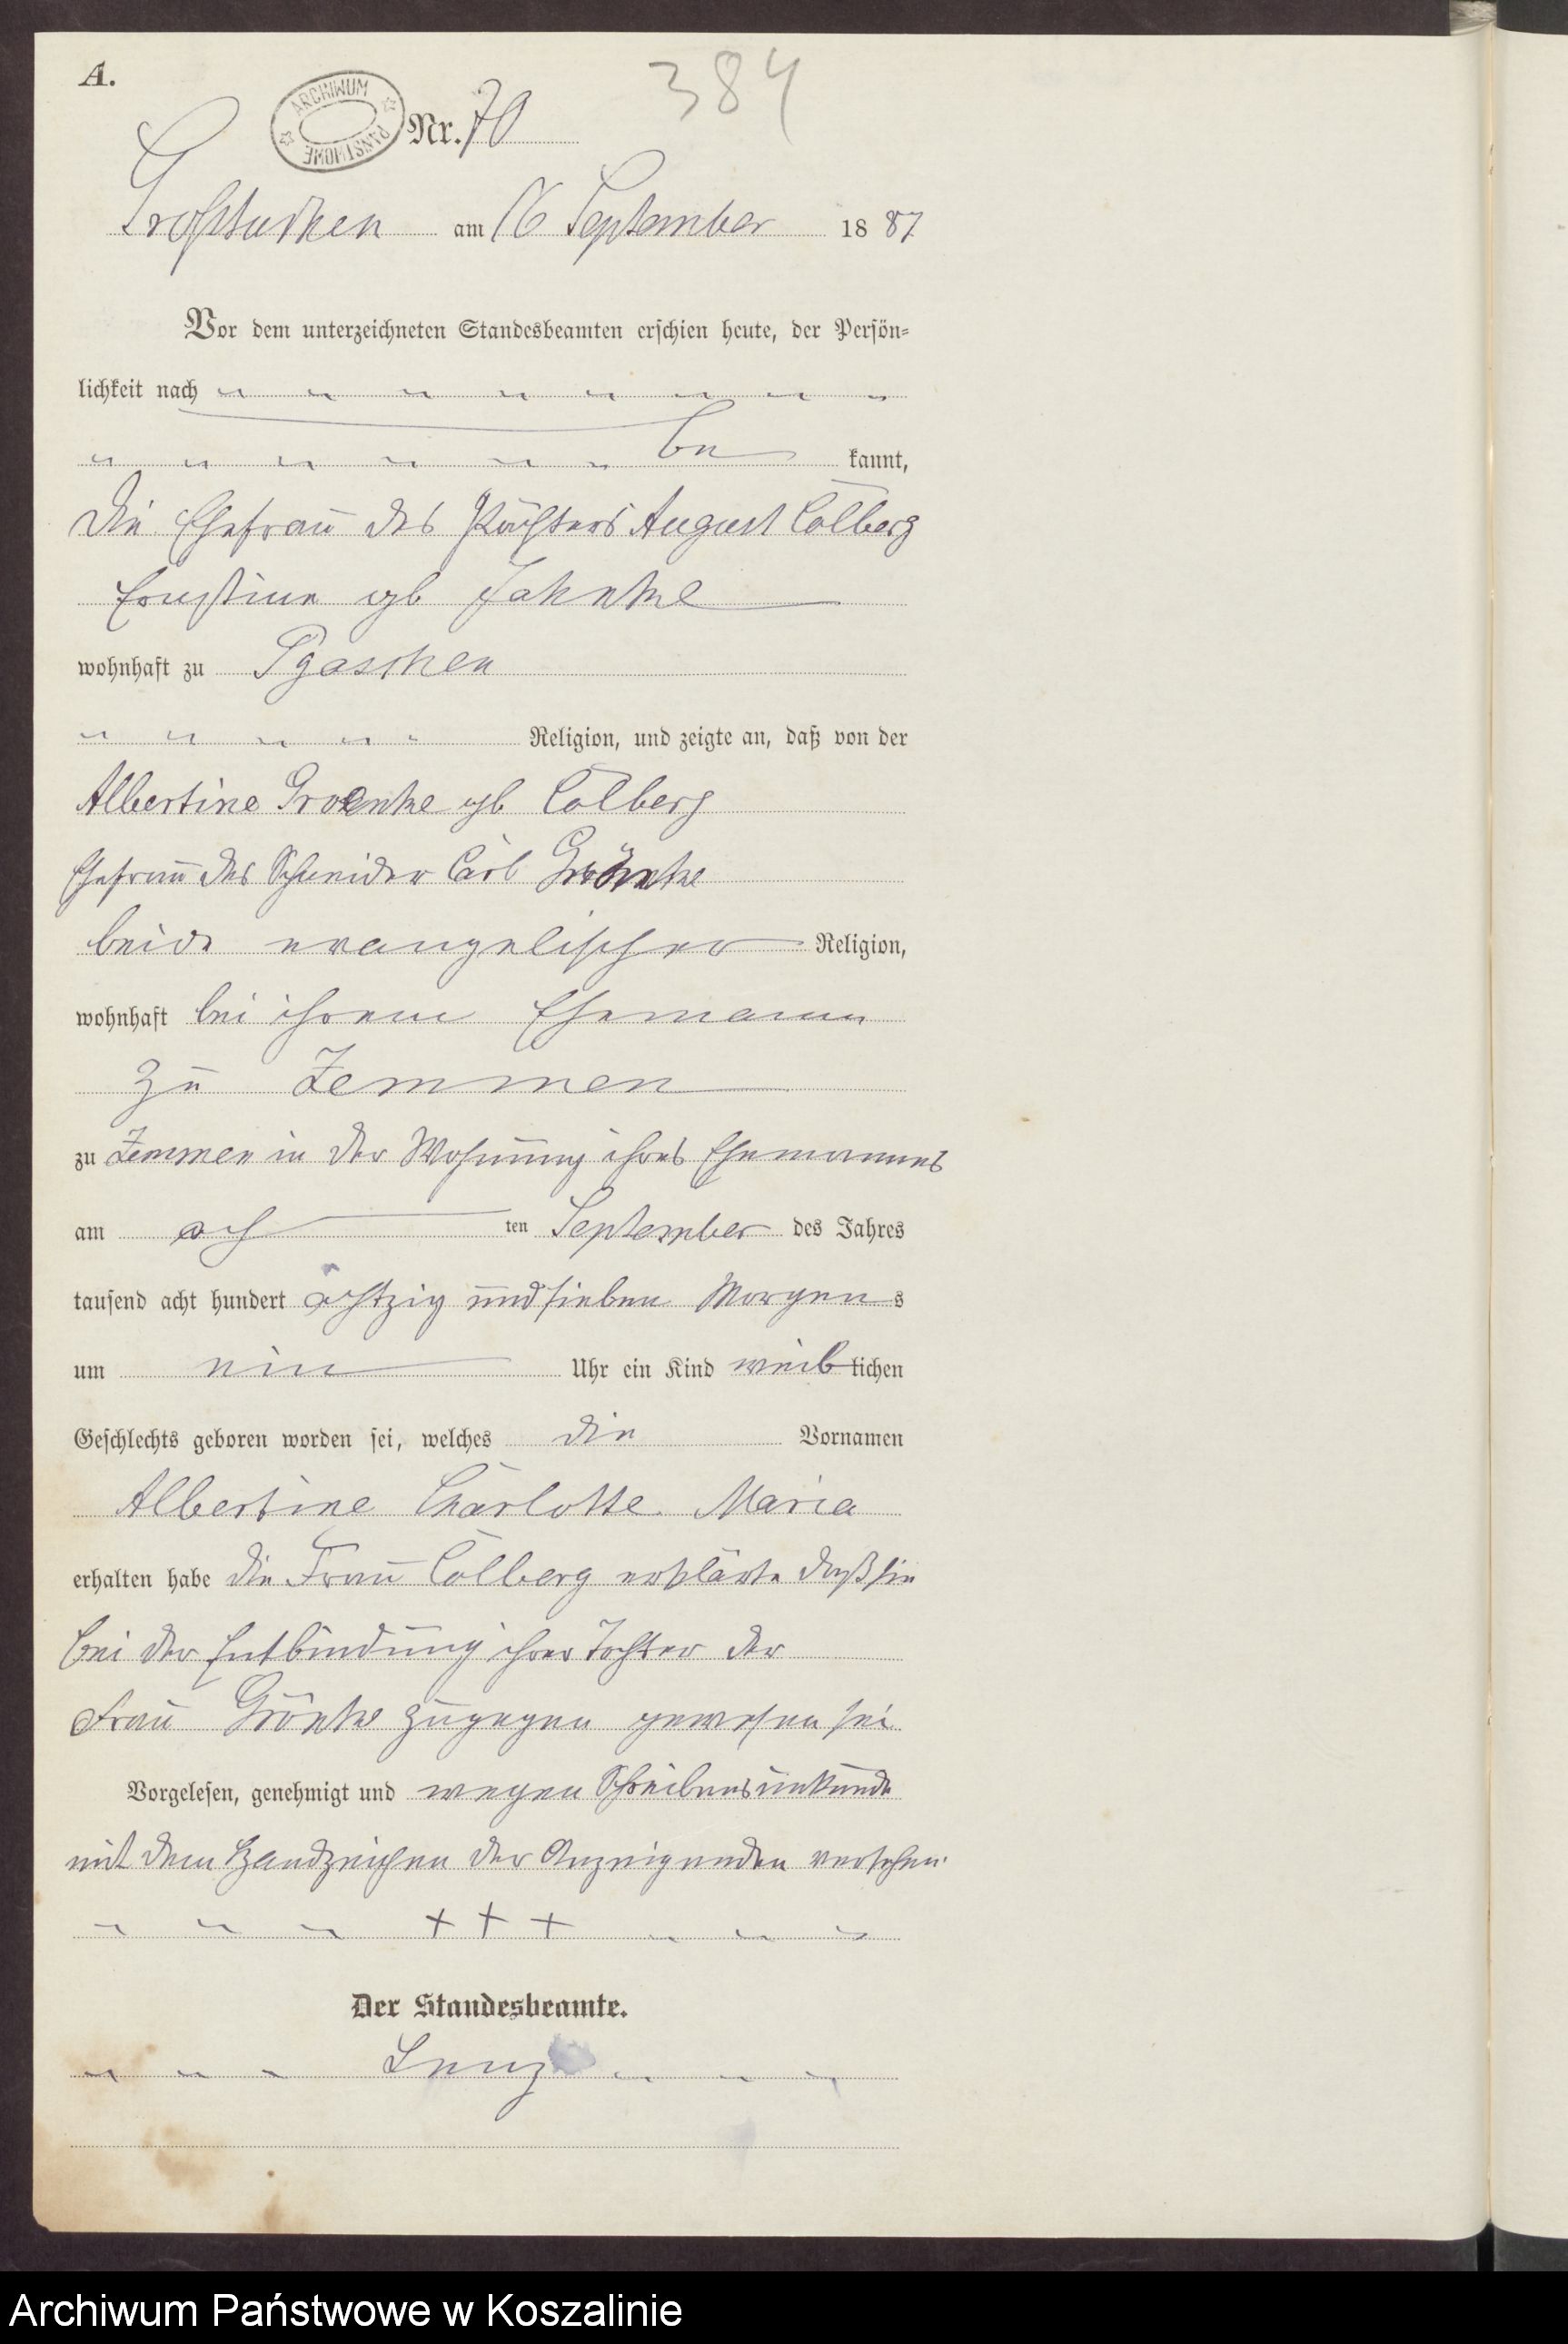 A.
384
ARCHIWUM PAŃSTWOWE
Nr. 70
Großtuchen am 16 September 1887
Vor dem unterzeichneten Standesbeamten erschien heute, der Persön-
lichkeit nach
be kannt,
die Ehefrau des Pächters August Colberg
Ernstine geb Jahnke
wohnhaft zu Pgaschen
Religion, und zeigte an, daß von der
Albertine Groenke geb Colberg
Ehefrau des Schneider Carl Grönke
beide evangelischer Religion,
wohnhaft bei ihrem Ehemann
zu Zemmen
zu Zemmen in der Wohnung ihres Ehemannes
am ach ten September des Jahres
tausend acht hundert achtzig und sieben Morgens
um ein Uhr ein Kind weiblichen
Geschlechts geboren worden sei, welches die Vornamen
Albertine Charlotte Maria
erhalten habe die Frau Colberg erklärte daß sie
bei der Entbindung ihrer Tochter der
Frau Grönke zugegen gewesen sei
Vorgelesen, genehmigt und wegen Schreibensunkunde
mit dem Handzeichen der Anzeigenden versehen.
+ + +
Der Standesbeamte.
Lenz
Archiwum Państwowe w Koszalinie